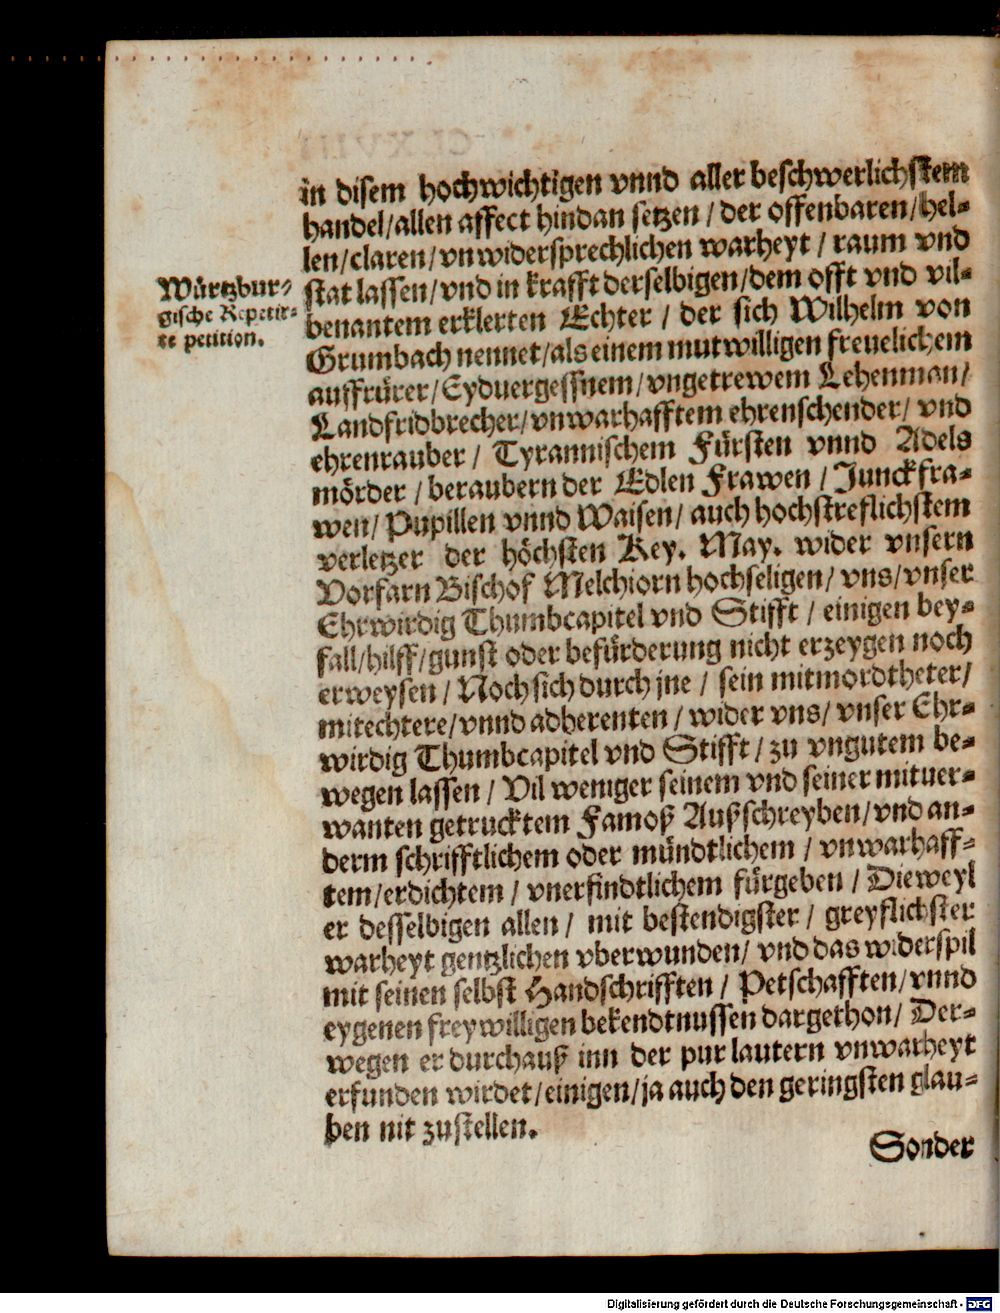 in disem hochwichtigen vnnd aller beschwerlichstem
handel/allen affect hindan setzen / der offenbaren/hel-
len/claren/vnwidersprechlichen warheyt / raum vnd
stat lassen/vnd in krafft derselbigen/dem offt vnd vil-
benantem erklerten Echter / der sich Wilhelm von
Grumbach nennet/als einem mutwilligen freuelichem
auffrürer/Eyduergessnem/vngetrewem Lehenman/
Landfridbrecher/vnwarhafftem ehrenschender/ vnd
ehrenrauber / Tyrannischem Fürsten vnnd Adels
mörder / beraubern der Edlen Frawen / Junckfra-
wen/ Pupillen vnnd Waisen/ auch hochstreflichstem
verletzer der höchsten Key. May. wider vnsern
Vorfarn Bischof Melchiorn hochseligen/ vns/vnser
Ehrwirdig Thumbcapitel vnd Stifft / einigen bey-
fall/hilff/gunst oder befürderung nicht erzeygen noch
erweysen / Noch sich durch jne / sein mitmordtheter/
mitechtere/vnnd adherenten / wider vns/ vnser Ehr-
wirdig Thumbcapitel vnd Stifft / zu vngutem be-
wegen lassen / Vil weniger seinem vnd seiner mituer-
wanten getrucktem Famoß Außschreyben/vnd an-
derm schrifftlichem oder mündtlichem / vnwarhaff-
tem/erdichtem / vnerfindtlichem fürgeben / Dieweyl
er desselbigen allen / mit bestendigster / greyflichster
warheyt gentzlichen vberwunden/ vnd das widerspil
mit seinen selbst Handschrifften / Petschafften/vnnd
eygenen freywilligen bekendtnussen dargethon/ Der-
wegen er durchauß inn der pur lautern vnwarheyt
erfunden wirdet/einigen/ja auch den geringsten glau-
ben nit zustellen.
Sonder
Würtzbur-
gische Repetir-
te petition.
Digitalisierung gefördert durch die Deutsche Forschungsgemeinschaft - DFG